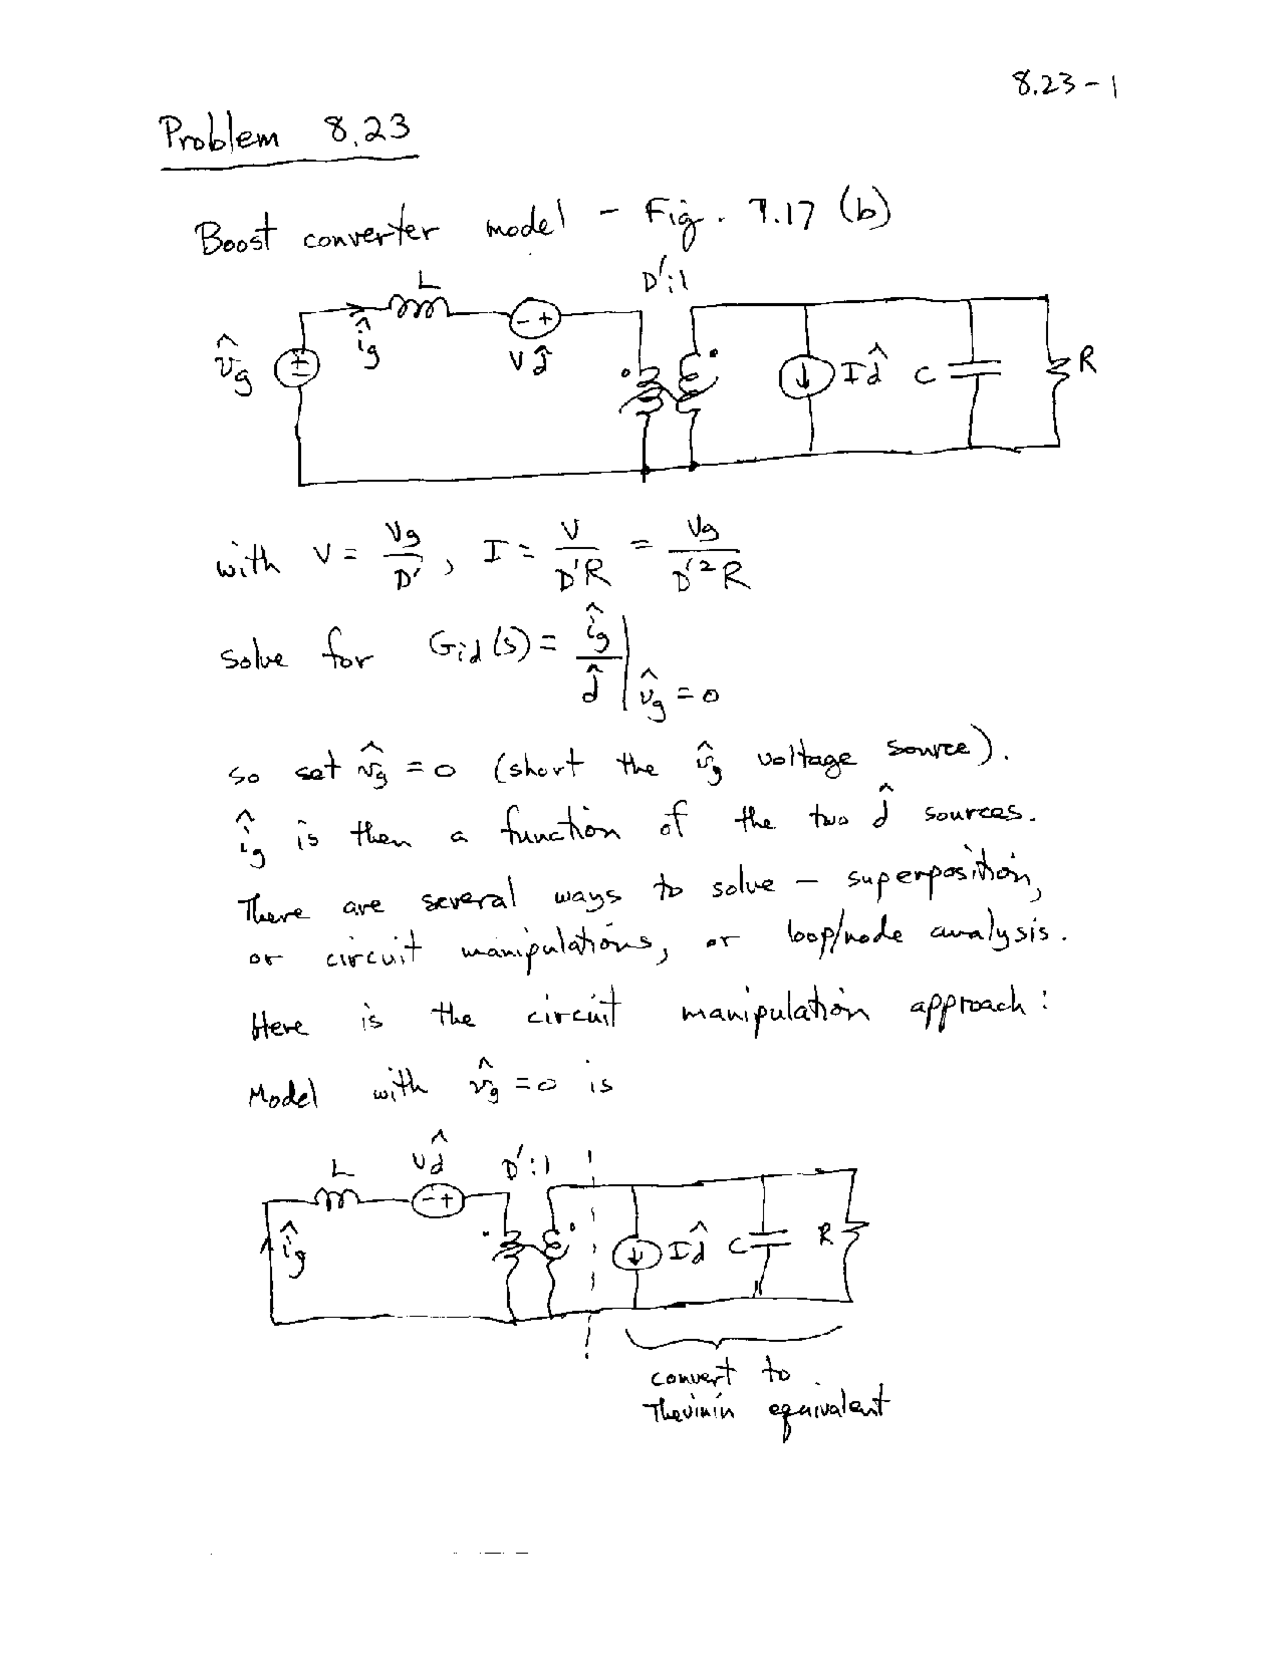 8.23-1
Problem 8.23
Boost converter model - Fig. 7.17 (b)
L
D':1
v̂g
îg
Vd̂
Id̂
C
R
with V = Vg/D', I = V/D'R = Vg/D'²R
solve for Gid(s) = îg/d̂ | v̂g = 0
so set v̂g = 0 (short the v̂g voltage source).
îg is then a function of the two d̂ sources.
There are several ways to solve - superposition,
or circuit manipulations, or loop/node analysis.
Here is the circuit manipulation approach:
Model with v̂g = 0 is
L
Vd̂
D':1
îg
Id̂
C
R
convert to
Thevinin equivalent